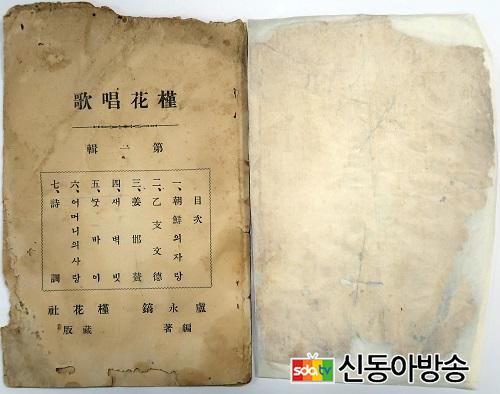 槿花唱歌
第一輯
目次
一、朝鮮의자랑
二、乙支文德
三、姜邯贊
四、새벽빗
五、쏫바이
六、어머니의사랑
七、詩調
盧永鎬 編著
槿花社 藏版
sdatv 신동아방송